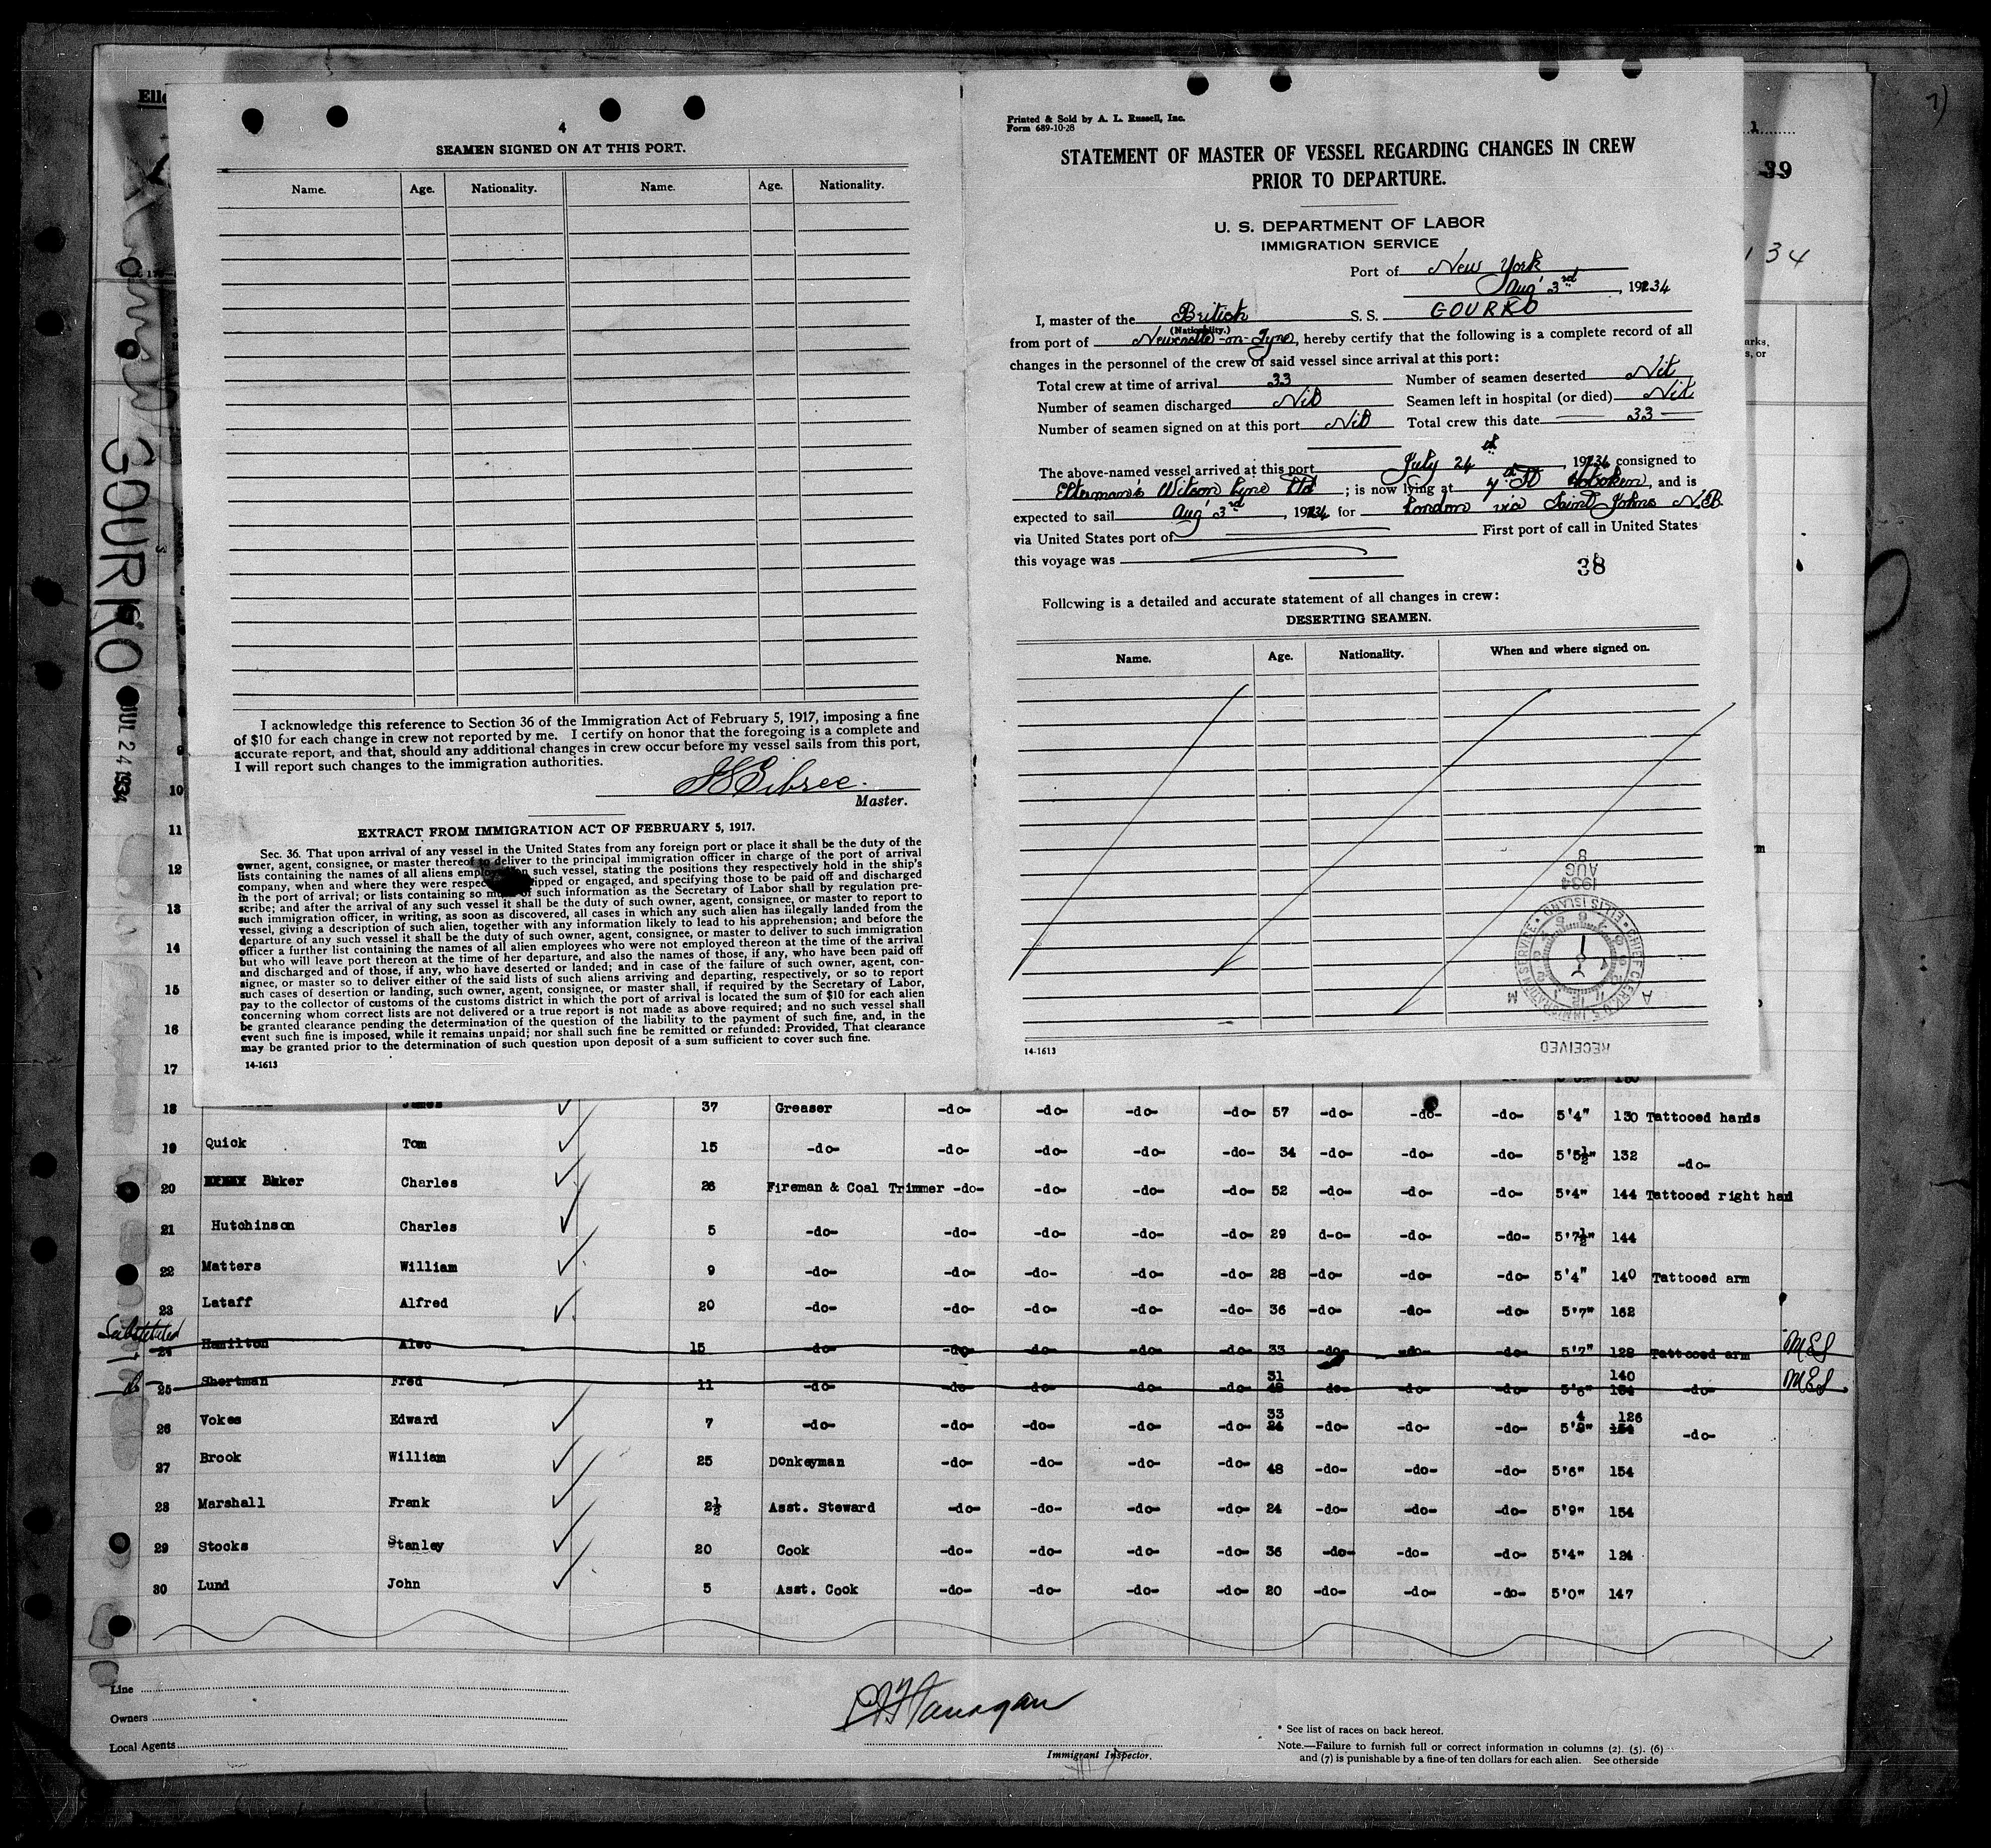 4
SEAMEN SIGNED ON AT THIS PORT.
Name. Age. Nationality. Name. Age. Nationality.
I acknowledge this reference to Section 36 of the Immigration Act of February 5, 1917, imposing a fine
of $10 for each change in crew not reported by me. I certify on honor that the foregoing is a complete and
accurate report, and that, should any additional changes in crew occur before my vessel sails from this port,
I will report such changes to the immigration authorities.
Master.
EXTRACT FROM IMMIGRATION ACT OF FEBRUARY 5, 1917.
Sec. 36. That upon arrival of any vessel in the United States from any foreign port or place it shall be the duty of the
owner, agent, consignee, or master thereof to deliver to the principal immigration officer in charge of the port of arrival
lists containing the names of all aliens employed on such vessel, stating the positions they respectively hold in the ship's
company, when and where they were respec ipped or engaged, and specifying those to be paid off and discharged
in the port of arrival; or lists containing so much of such information as the Secretary of Labor shall by regulation pre-
scribe; and after the arrival of any such vessel it shall be the duty of such owner, agent, consignee, or master to report to
such immigration officer, in writing, as soon as discovered, all cases in which any such alien has illegally landed from the
vessel, giving a description of such alien, together with any information likely to lead to his apprehension; and before the
departure of any such vessel it shall be the duty of such owner, agent, consignee, or master to deliver to such immigration
officer a further list containing the names of all alien employees who were not employed thereon at the time of the arrival
but who will leave port thereon at the time of her departure, and also the names of those, if any, who have been paid off
and discharged and of those, if any, who have deserted or landed; and in case of the failure of such owner, agent, con-
signee, or master so to deliver either of the said lists of such aliens arriving and departing, respectively, or so to report
such cases of desertion or landing, such owner, agent, consignee, or master shall, if required by the Secretary of Labor,
pay to the collector of customs of the customs district in which the port of arrival is located the sum of $10 for each alien
concerning whom correct lists are not delivered or a true report is not made as above required; and no such vessel shall
be granted clearance pending the determination of the question of the liability to the payment of such fine, and, in the
event such fine is imposed, while it remains unpaid; nor shall such fine be remitted or refunded: Provided, That clearance
may be granted prior to the determination of such question upon deposit of a sum sufficient to cover such fine.
14-1613
Printed & Sold by A. L. Russell, Inc.
Form 689-10-28
STATEMENT OF MASTER OF VESSEL REGARDING CHANGES IN CREW
PRIOR TO DEPARTURE.
U. S. DEPARTMENT OF LABOR
IMMIGRATION SERVICE
Port of New York
Aug' 3rd, 1934
I, master of the British S. S. GOURKO
(Nationality.)
from port of Newcastle-on-Tyne, hereby certify that the following is a complete record of all
changes in the personnel of the crew of said vessel since arrival at this port:
Total crew at time of arrival 33 Number of seamen deserted Nil
Number of seamen discharged Nil Seamen left in hospital (or died) Nil
Number of seamen signed on at this port Nil Total crew this date 33
The above-named vessel arrived at this port July 24, 1934 consigned to
Ellerman's Wilson Line Ltd; is now lying at 7th St Hoboken, and is
expected to sail Aug' 3rd, 1934 for London via Saint Johns N.B.
via United States port of First port of call in United States
this voyage was
38
Following is a detailed and accurate statement of all changes in crew:
DESERTING SEAMEN.
Name. Age. Nationality. When and where signed on.
8
AUG
1934
CHIEF CLERK U.S. IMMIGRATION SERVICE ELLIS ISLAND
A M
RECEIVED
14-1613
1
39
134
GOURKO
JUL 24 1934
9
10
11
12
13
14
15
16
17
18 James 37 Greaser -do- -do- -do- -do- 57 -do- -do- -do- 5'4" 130 Tattooed hands
19 Quick Tom 15 -do- -do- -do- -do- -do- 34 -do- -do- -do- 5'5½" 132 -do-
20 Baker Charles 26 Fireman & Coal Trimmer -do- -do- -do- -do- 52 -do- -do- -do- 5'4" 144 Tattooed right hand
21 Hutchinson Charles 5 -do- -do- -do- -do- -do- 29 d-o- -do- -do- 5'7½" 144
22 Matters William 9 -do- -do- -do- -do- -do- 28 -do- -do- -do- 5'4" 140 Tattooed arm
23 Lataff Alfred 20 -do- -do- -do- -do- -do- 36 -do- -do- -do- 5'7" 162
Substituted
24 Hamilton Alec 15 -do- -do- -do- -do- -do- 33 -do- -do- -do- 5'7" 128 Tattooed arm MES
31 140
25 Shertman Fred 11 -do- -do- -do- -do- -do- 48 -do- -do- -do- 5'6" 164 -do- MES
33 4 126
26 Vokes Edward 7 -do- -do- -do- -do- -do- 24 -do- -do- -do- 5'9" 154 -do-
27 Brook William 25 Donkeyman -do- -do- -do- -do- 48 -do- -do- -do- 5'6" 154
28 Marshall Frank 2½ Asst. Steward -do- -do- -do- -do- 24 -do- -do- -do- 5'9" 154
29 Stocks Stanley 20 Cook -do- -do- -do- -do- 36 -do- -do- -do- 5'4" 124
30 Lund John 5 Asst. Cook -do- -do- -do- -do- 20 -do- -do- -do- 5'0" 147
Line
Owners
Local Agents
Flanagan
Immigrant Inspector.
* See list of races on back hereof.
Note.—Failure to furnish full or correct information in columns (2). (5). (6)
and (7) is punishable by a fine of ten dollars for each alien. See other side